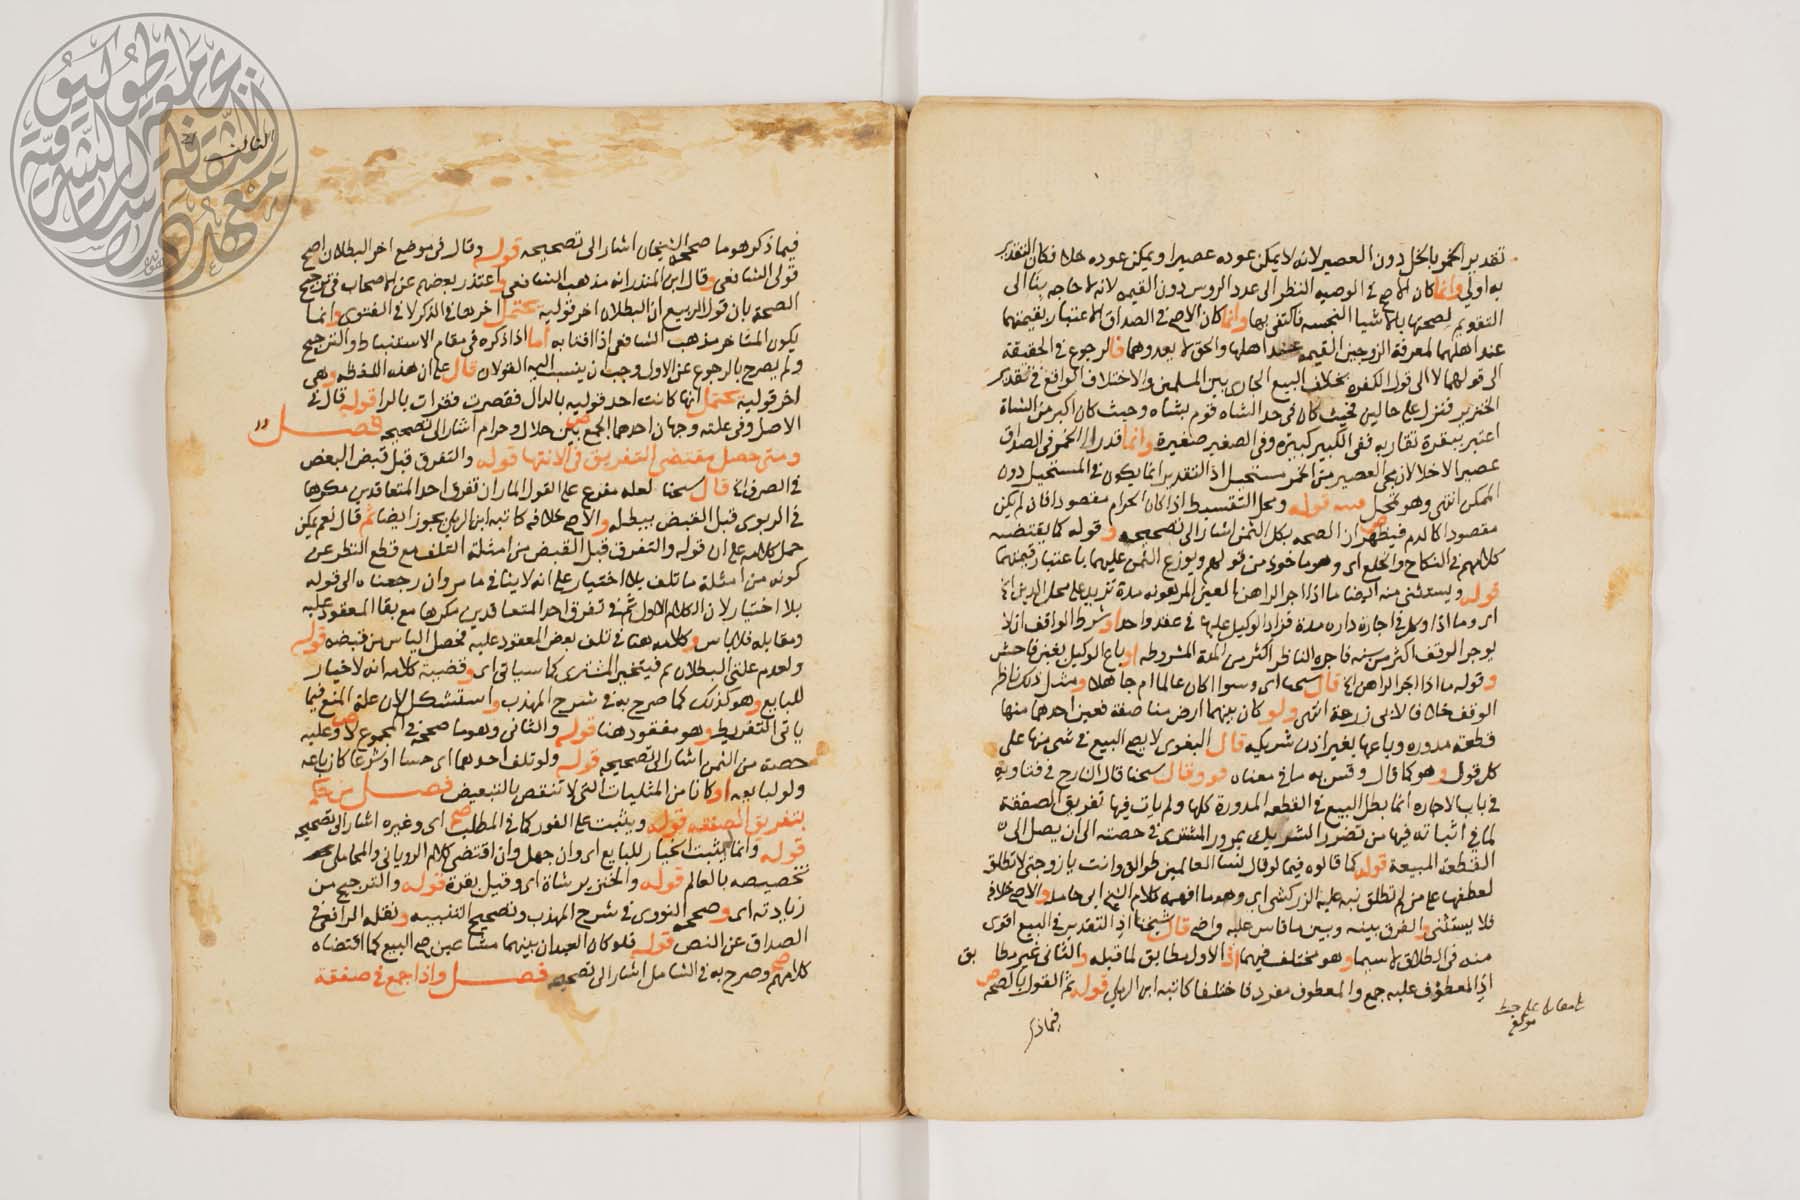 تقدير الخمر بالخل دون العصير لانه لا يمكن عوده عصيرا ويمكن عوده خلا فكان التقدير
به اولى وانما كان الاصح في الوصيه النظر الى عدد الروس دون القيمه لانه لا حاجه بنا الى
التقويم لصحتها بالاشيا النجسه فاكتفى بها وانما كان الاصح في الصداق الاعتبار بقيمتهما
عند اهلهما لمعرفة الزوجين القيمه عند اهلها والحق لا يعدوهما فالرجوع في الحقيقة
الى قولهما لا الى قول الكفره بخلاف البيع الجاري بين المسلمين والاختلاف الواقع في تقدير
الخنزير فنزل على حالين فحيث كان في حد الشاه قوم بشاه وحيث كان اكبر من الشاة
اعتبر ببقرة تقاربه ففي الكبير كبيره وفي الصغير صغيرة وانما قدروا الخمر في الصداق
عصيرا لا خلا لان مجي العصير من الخمر مستحيل اذ التقدير انما يكون في المستحيل دون
الممكن انتهى وهو محتمل قوله ومحل التقسيط اذا كان الحرام مقصودا فان لم يكن
مقصودا كالدم فيظهر ان الصحه بكل الثمن اشار الى تصحيحه وقوله كما يقتضيه
كلامهم في النكاح والخلع اي وهو ماخوذ من قولهم ويوزع الثمن عليهما باعتبار قيمتهما
قوله ويستثنى منه ايضا ما اذا اجر الراهن العين المرهونه مدة تزيد على محل الدين الخ
اي وما اذا وكل في اجارة داره مدة فزاد الوكيل عليها في عقد واحد او شرط الواقف ان لا
يوجر الوقف اكثر من سنه فاجره الناظر اكثر من المدة المشروطه او باع الوكيل بغبن فاحش
وقوله ما اذا اجر الراهن الخ قال شيخنا اي وسوا اكان عالما ام جاهلا ومثل ذلك ناظر
الوقف خلافا لابي زرعة انتهى ولو كان بينهما ارض مناصفة فعين احدهما منها
قطعة مدوره وباعها بغير اذن شريكه قال البغوي لا يصح البيع في شي منها على
كل قول وهو كما قال وقس به ما في معناه وقال شيخنا قال الشارح في فتاويه
في باب الاجاره انما بطل البيع في القطعه المدورة كلها ولم يات فيها تفريق الصفقة
لما في اثباته فيها من تضرر الشريك بمرور المشتري في حصته الى ان يصل الى
القطعة المبيعة قوله كما قالوه فيما لو قال لنسا العالمين طوالق وانت يا زوجتي لا تطلق
لعطفها على من لم تطلق نبه عليه الزركشي اي وهو ما افهمه كلام الشيخ ابي حامد والاصح خلافه
فلا يستثنى والفرق بينه وبين ما قاس عليه واضح قال شيخنا اذ التقدير في البيع اقوى
منه في الطلاق لا سيما وهو مختلف فيهما اذ الاول مطابق لما قبله والثاني غير مطا بق
اذ المعطوف عليه جمع والمعطوف مفرد فاختلفا كاتبه ابن الرملي قوله ثم القول بالصحه
فيما ذكر
فيما ذكر هو ما صححه الشيخان اشار الى تصحيحه قوله وقال في موضع اخر البطلان اصح
قولي الشافعي وقال ابن المنذر انه مذهب الشافعي واعتذر بعضهم عن الاصحاب في ترجيح
الصحة بان قول الربيع ان البطلان اخر قوليه يحتمل اخرهما في الذكر لا في الفتوى وانما
يكون المتاخر مذهب الشافعي اذا افتى به اما اذا ذكره في مقام الاستنباط والترجيح
ولم يصرح بالرجوع عن الاول وجب ان ينسب اليه القولان قال على ان هذه اللفظه وهي
اخر قوليه يحتمل انها كانت احد قوليه بالدال فقصرت فقرات بالرا قوله قال في
الاصل وفي علته وجهان احدهما الجمع بين حلال وحرام اشار الى تصحيحه فصل
ومتى حصل مقتضى التفريق في الانتها قوله والتفرق قبل قبض البعض
في الصرف الخ قال شيخنا لعله مفرع على القول المار ان تفرق احد المتعاقدين مكرها
في الربوي قبل القبض يبطله والاصح خلافه كاتبه ابن الرملي يجوز ايضا ثم قال نعم يمكن
حمل كلامه على ان قوله والتفرق قبل القبض من امثلة التلف مع قطع النظر عن
كونه من امثلة ما تلف بلا اختيار على انه لا ينافي ما مر وان رجعناه الى قوله
بلا اختيار لان الكلام الاول ثم في تفرق احد المتعاقدين مكرها مع بقا المعقود عليه
ومقابله فلا ياس وكلامه هنا في تلف بعض المعقود عليه فحصل الياس من قبضه قوله
ولعدم علتي البطلان ثم فيتخير المشتري كما سياتي اي وقضية كلامه انه لا خيار
للبايع وهو كذلك كما صرح به في شرح المهذب واستشكل لان علة المنع فيما
ياتي التفريط وهو مفقود هنا قوله والثاني وهو ما صححه في المجموع لا وعليه
حصته من الثمن اشار الى تصحيحه قوله ولو تلف احدهما اي حسا او شرعا كان باعه
ولو لبايعه او كانا من المثليات التي لا تنقص بالتبعيض فصل من حكم
بتفريق الصفقه قوله ويثبت على الفور كما في المطلب اي وغيره اشار الى تصحيحه
قوله وانما يثبت الخيار للبايع اي وان جهل وان اقتضى كلام الروياني والمحاملي
تخصيصه بالعالم قوله والخنزير شاة اي وقيل بقرة قوله والترجيح من
زيادته اي وصححه النووي في شرح المهذب وتصحيح التنبيه ونقله الرافعي في
الصداق عن النص قوله فلو كان العبدان بينهما مشاعين صح البيع كما اقتضاه
كلامهم وصرح به في الشامل اشار الى تصحيحه فصل واذا جمع في صفقة